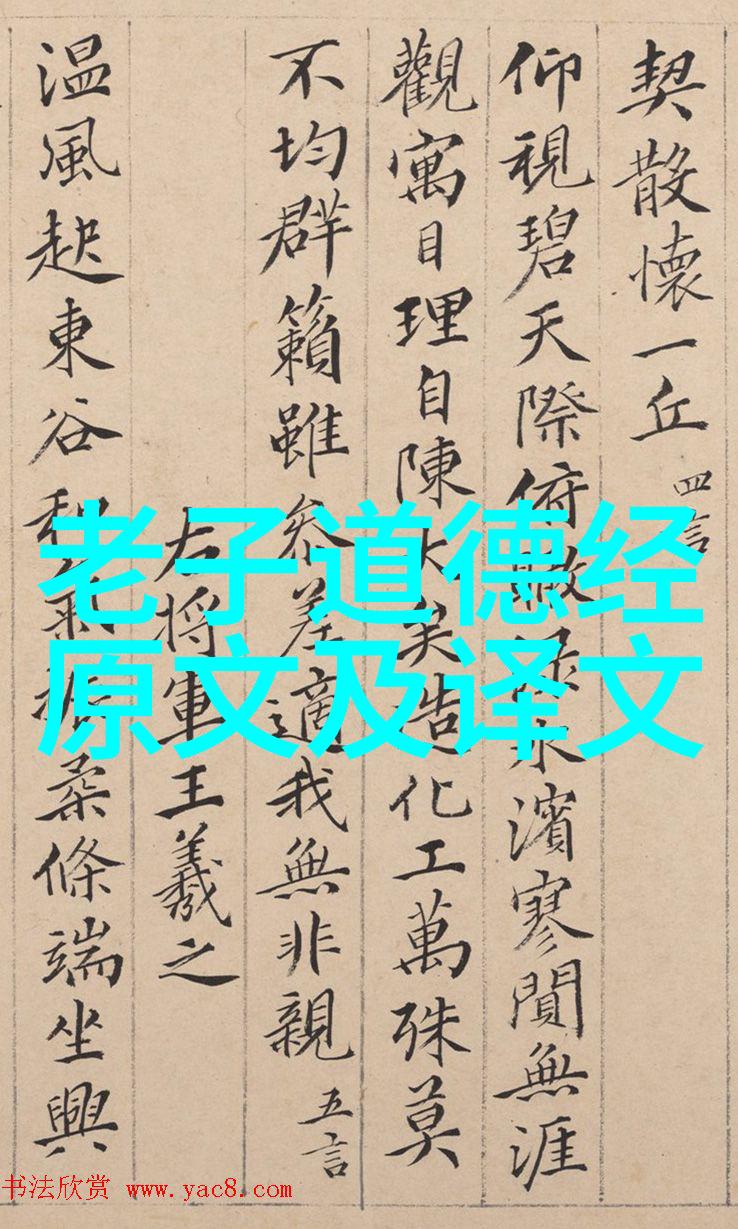 契散懷一丘 四言
仰視碧天際俯瞰水濱寥閴無涯
觀寓目理自陳大矣造化工萬殊莫
不均群籟雖參差適我無非親 五言
右將軍王羲之
温風起東谷和氣振柔條端坐興
老子道德经
原文及译文
书法欣赏 www.yac8.com